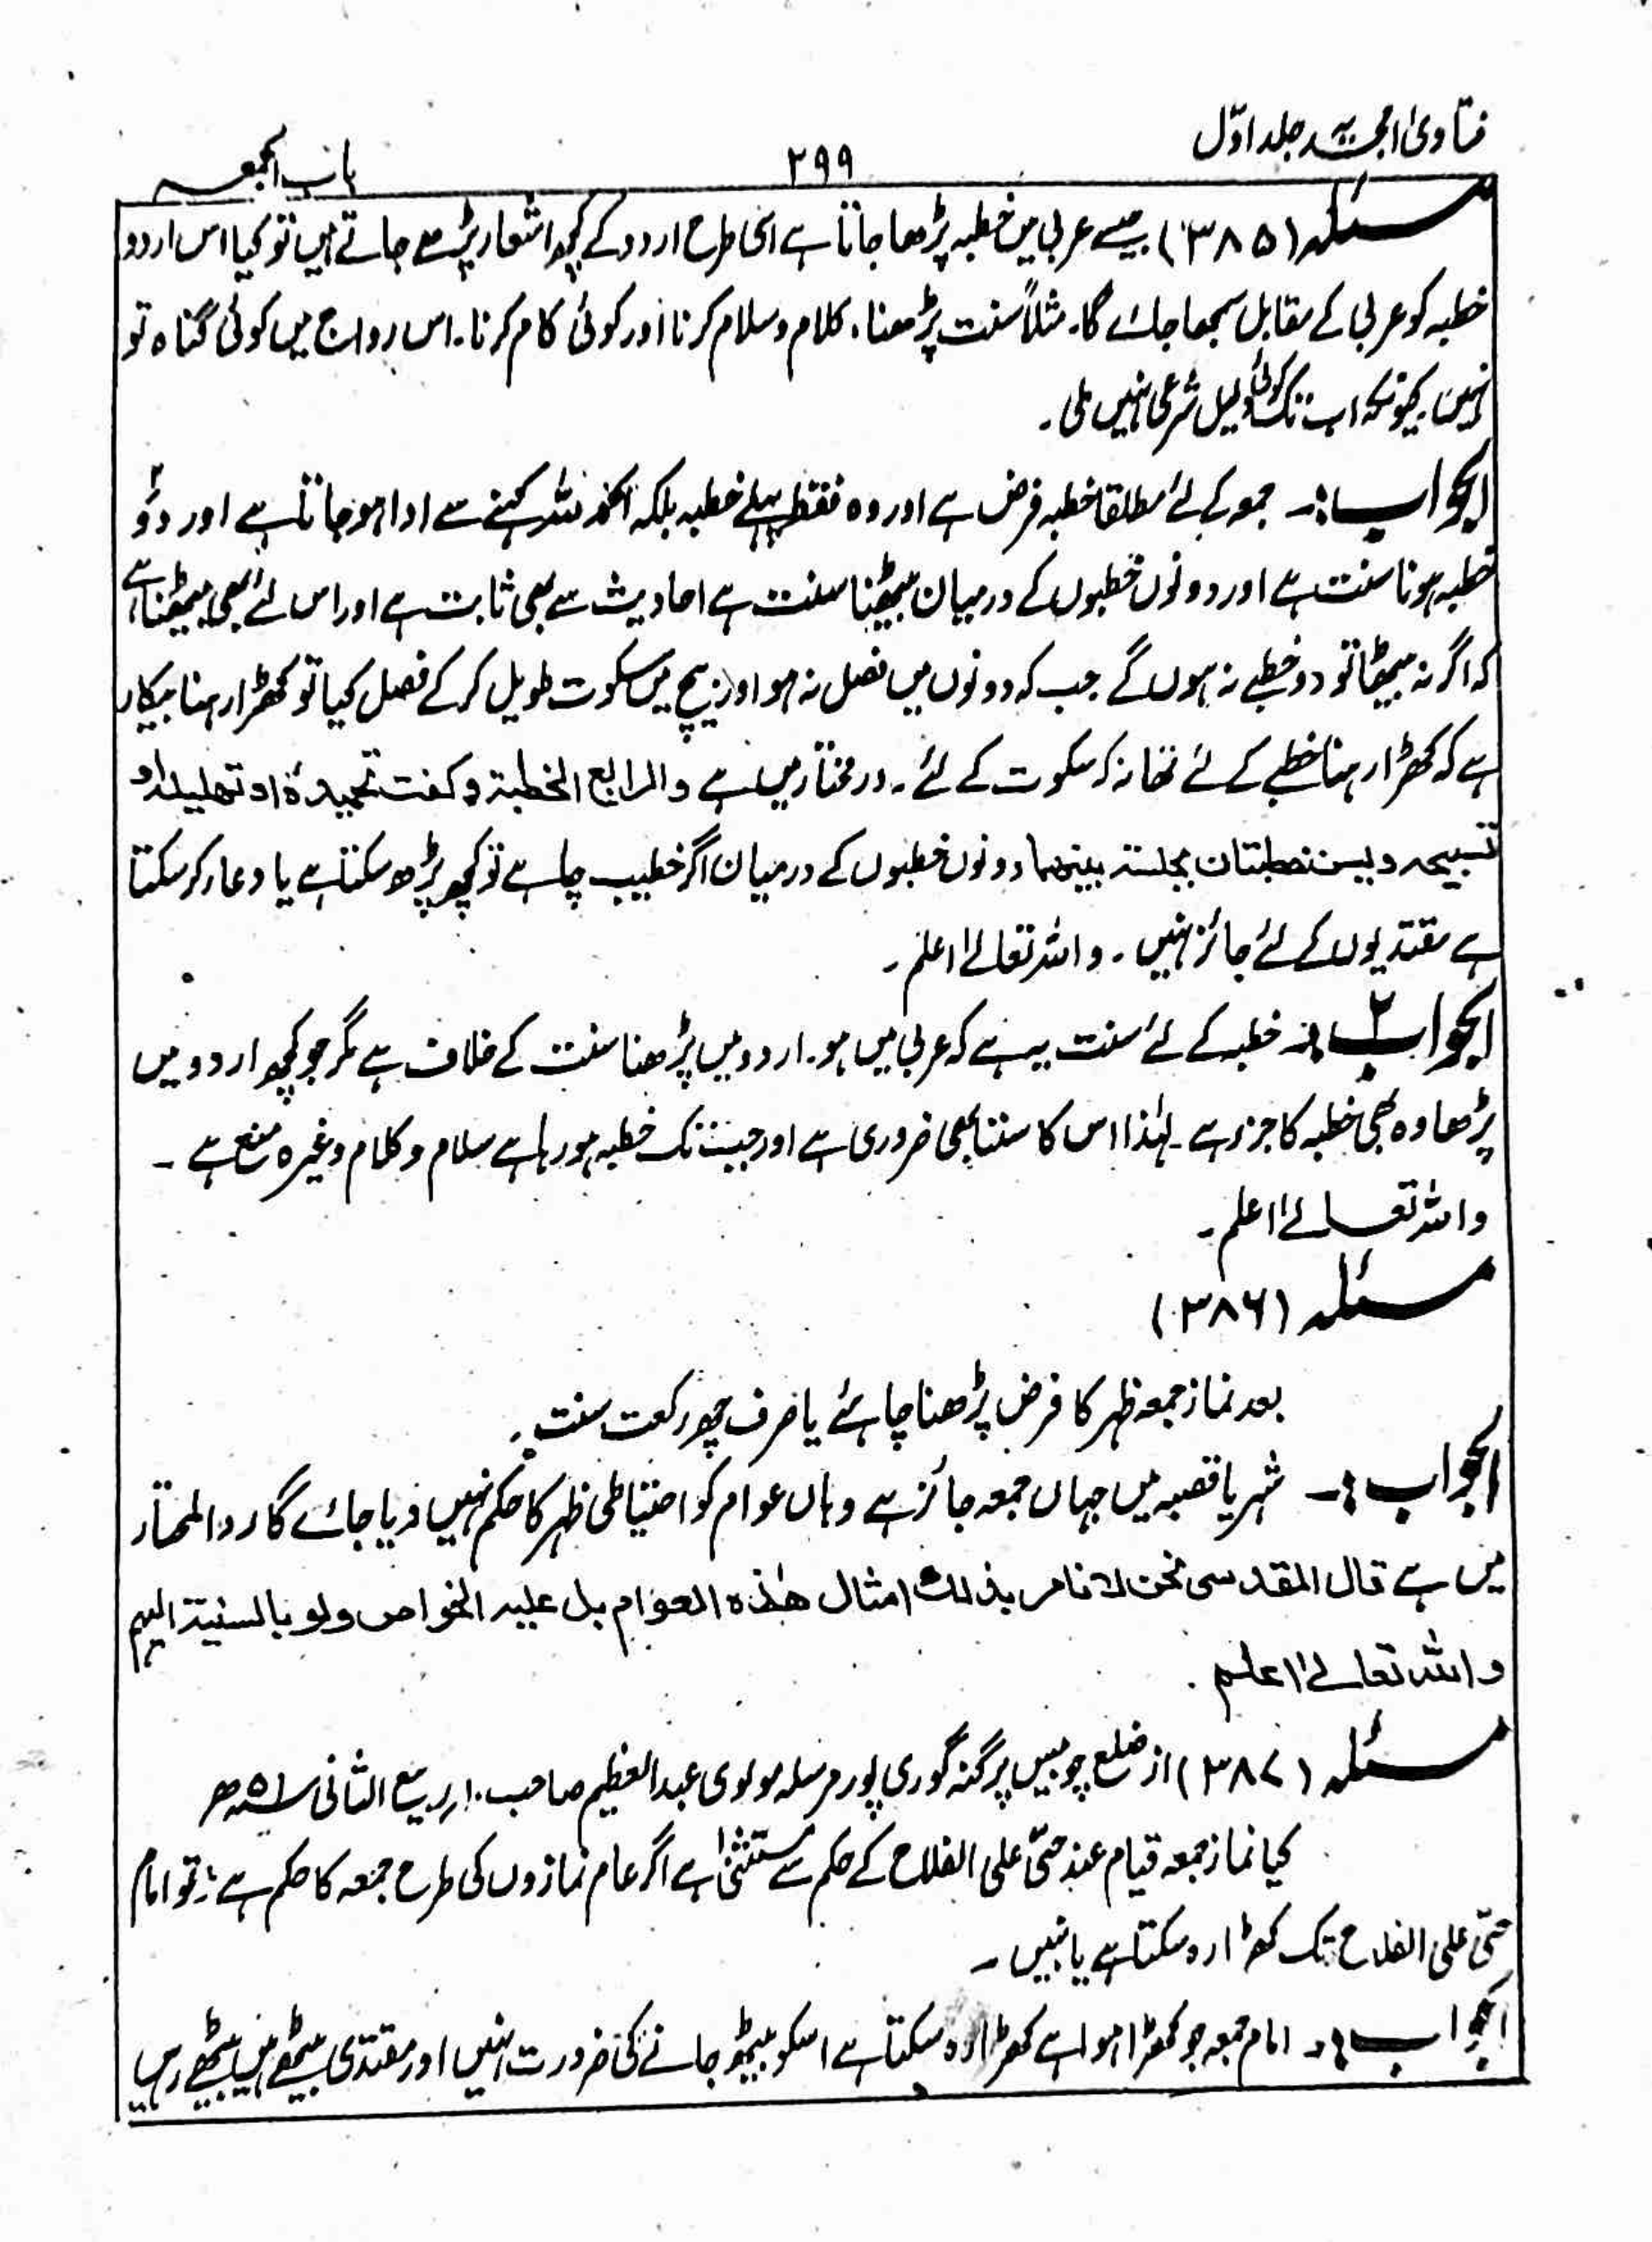 فتاویٰ امجدیہ جلد اوّل
۲۹۹
باب الجمعہ
مسئلہ (۳۸۵) جیسے عربی میں خطبہ پڑھا جاتا ہے اسی طرح اردو کے کچھ اشعار پڑھے جاتے ہیں تو کیا اس اردو
خطبہ کو عربی کے مقابل سمجھا جائے گا۔ مثلاً سنت پڑھنا، کلام و سلام کرنا اور کوئی کام کرنا۔ اس رواج میں کوئی گناہ تو
نہیں، کیونکہ اب تک کوئی دلیل شرعی نہیں ملی۔
الجواب :۔ جمعہ کے لئے مطلقا خطبہ فرض ہے اور وہ فقط پہلے خطبہ بلکہ الحمد للہ کہنے سے ادا ہو جاتا ہے اور دو۲
خطبہ ہونا سنت ہے اور دونوں خطبوں کے درمیان بیٹھنا سنت ہے احادیث سے بھی ثابت ہے اور اس لئے بھی بیٹھنا ہے
کہ اگر نہ بیٹھا تو دو خطبے نہ ہوں گے جب کہ دونوں میں فصل نہ ہو اور بیچ میں سکوت طویل کر کے فصل کیا تو کھڑا رہنا بیکار
ہے کہ کھڑا رہنا خطبے کے لئے تھا نہ کہ سکوت کے لئے۔ در مختار میں ہے والرابع الخطبۃ وکفت تحمیدۃ او تھلیلۃ او
تسبیحۃ ویسن خطبتان بجلسۃ بینھما دونوں خطبوں کے درمیان اگر خطیب چاہے تو کچھ پڑھ سکتا ہے یا دعا کر سکتا
ہے مقتدیوں کے لئے جائز نہیں۔ واللہ تعالےٰ اعلم۔
الجواب ۲ :۔ خطبہ کے لئے سنت یہ ہے کہ عربی میں ہو۔ اردو میں پڑھنا سنت کے خلاف ہے مگر جو کچھ اردو میں
پڑھا وہ بھی خطبہ کا جزء ہے۔ لہٰذا اس کا سننا بھی ضروری ہے اور جب تک خطبہ ہو رہا ہے سلام و کلام وغیرہ منع ہے۔
واللہ تعالےٰ اعلم۔
مسئلہ (۳۸۶)
بعد نماز جمعہ ظہر کا فرض پڑھنا چاہئے یا صرف چھ رکعت سنت۔
الجواب :۔ شہر یا قصبہ میں جہاں جمعہ جائز ہے وہاں عوام کو احتیاطی ظہر کا حکم نہیں دیا جائے گا ردالمحتار
میں ہے قال المقدسی نحن لا نامر بذلک امثال ھٰذہ العوام بل علیہ الخواص ولو بالسنیۃ الیہم
واللہ تعالےٰ اعلم۔
مسئلہ (۳۸۷) از ضلع چوبیس پرگنہ گوری پور مرسلہ مولوی عبدالعظیم صاحب ۱۰ ربیع الثانی ۵۱ھ
کیا نماز جمعہ قیام عند حیّ علی الفلاح کے حکم سے مستثنیٰ ہے اگر عام نمازوں کی طرح جمعہ کا حکم ہے، تو امام
حیّ علی الفلاح تک کھڑا رہ سکتا ہے یا نہیں۔
الجواب :۔ امام جمعہ جو کھڑا ہوا ہے کھڑا رہ سکتا ہے اسکو بیٹھ جانے کی ضرورت نہیں اور مقتدی بیٹھے ہیں بیٹھے رہیں